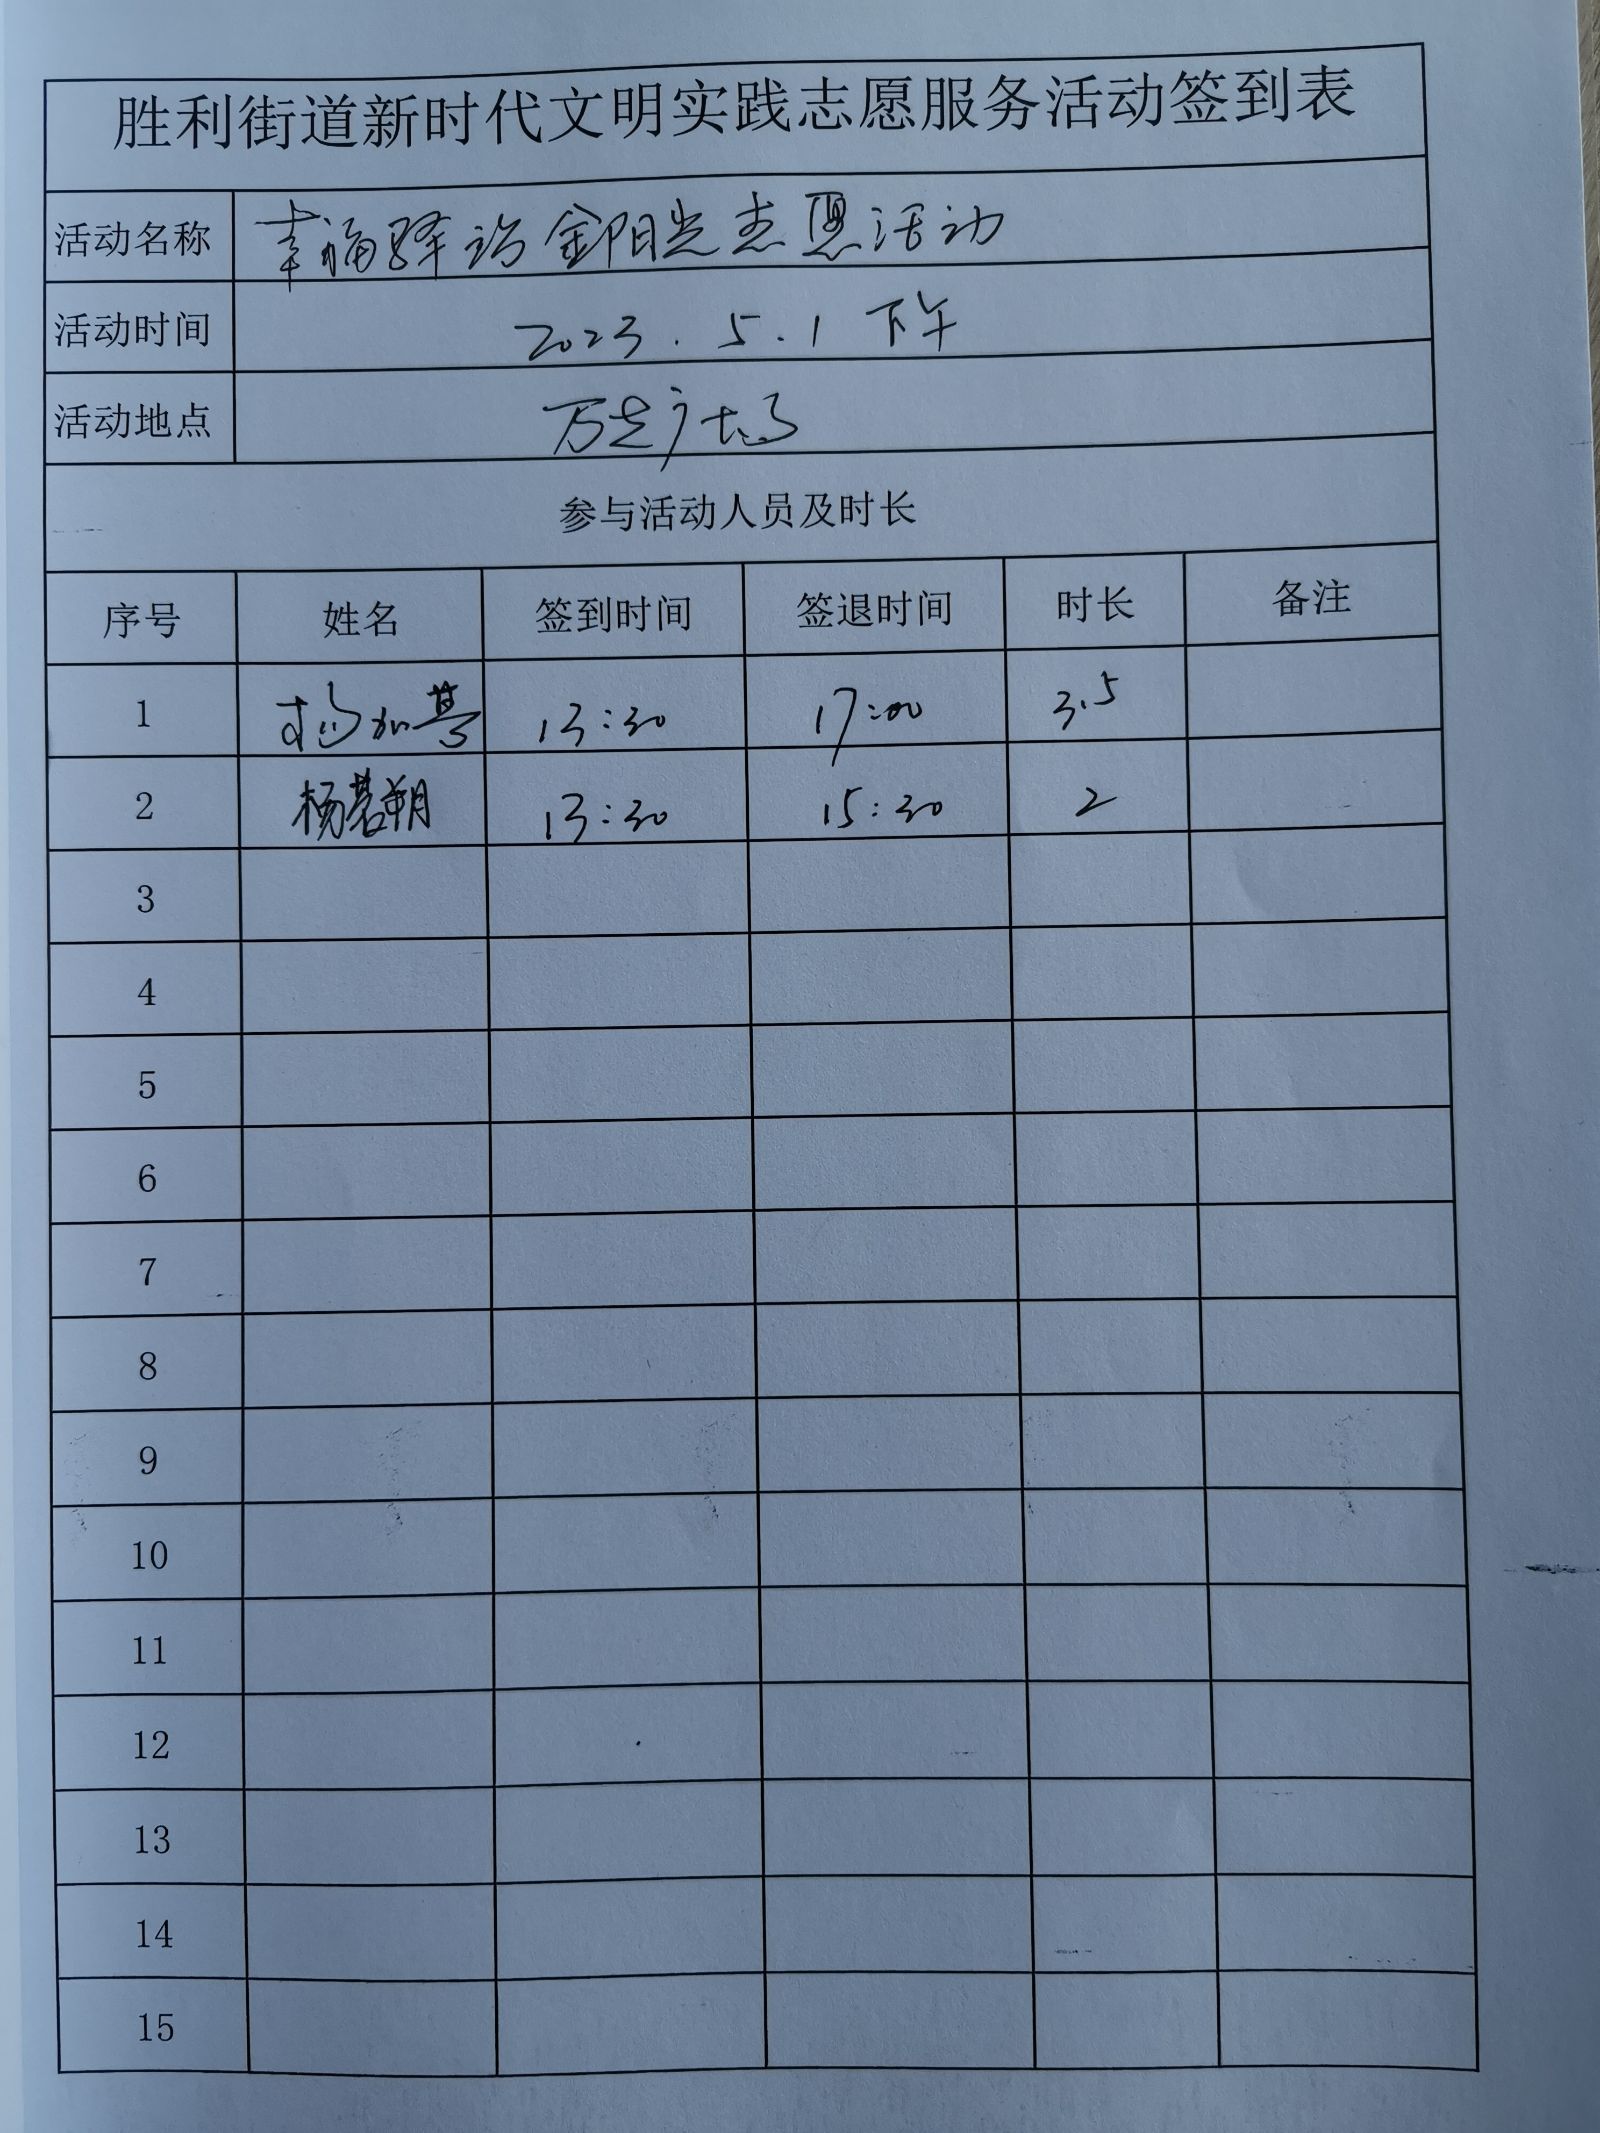 胜利街道新时代文明实践志愿服务活动签到表
活动名称 幸福驿站金阳光志愿活动
活动时间 2023.5.1下午
活动地点 万达广场
参与活动人员及时长
序号 姓名 签到时间 签退时间 时长 备注
1 杨加 13:30 17:00 3.5
2 杨若朔 13:30 15:30 2
3
4
5
6
7
8
9
10
11
12
13
14
15